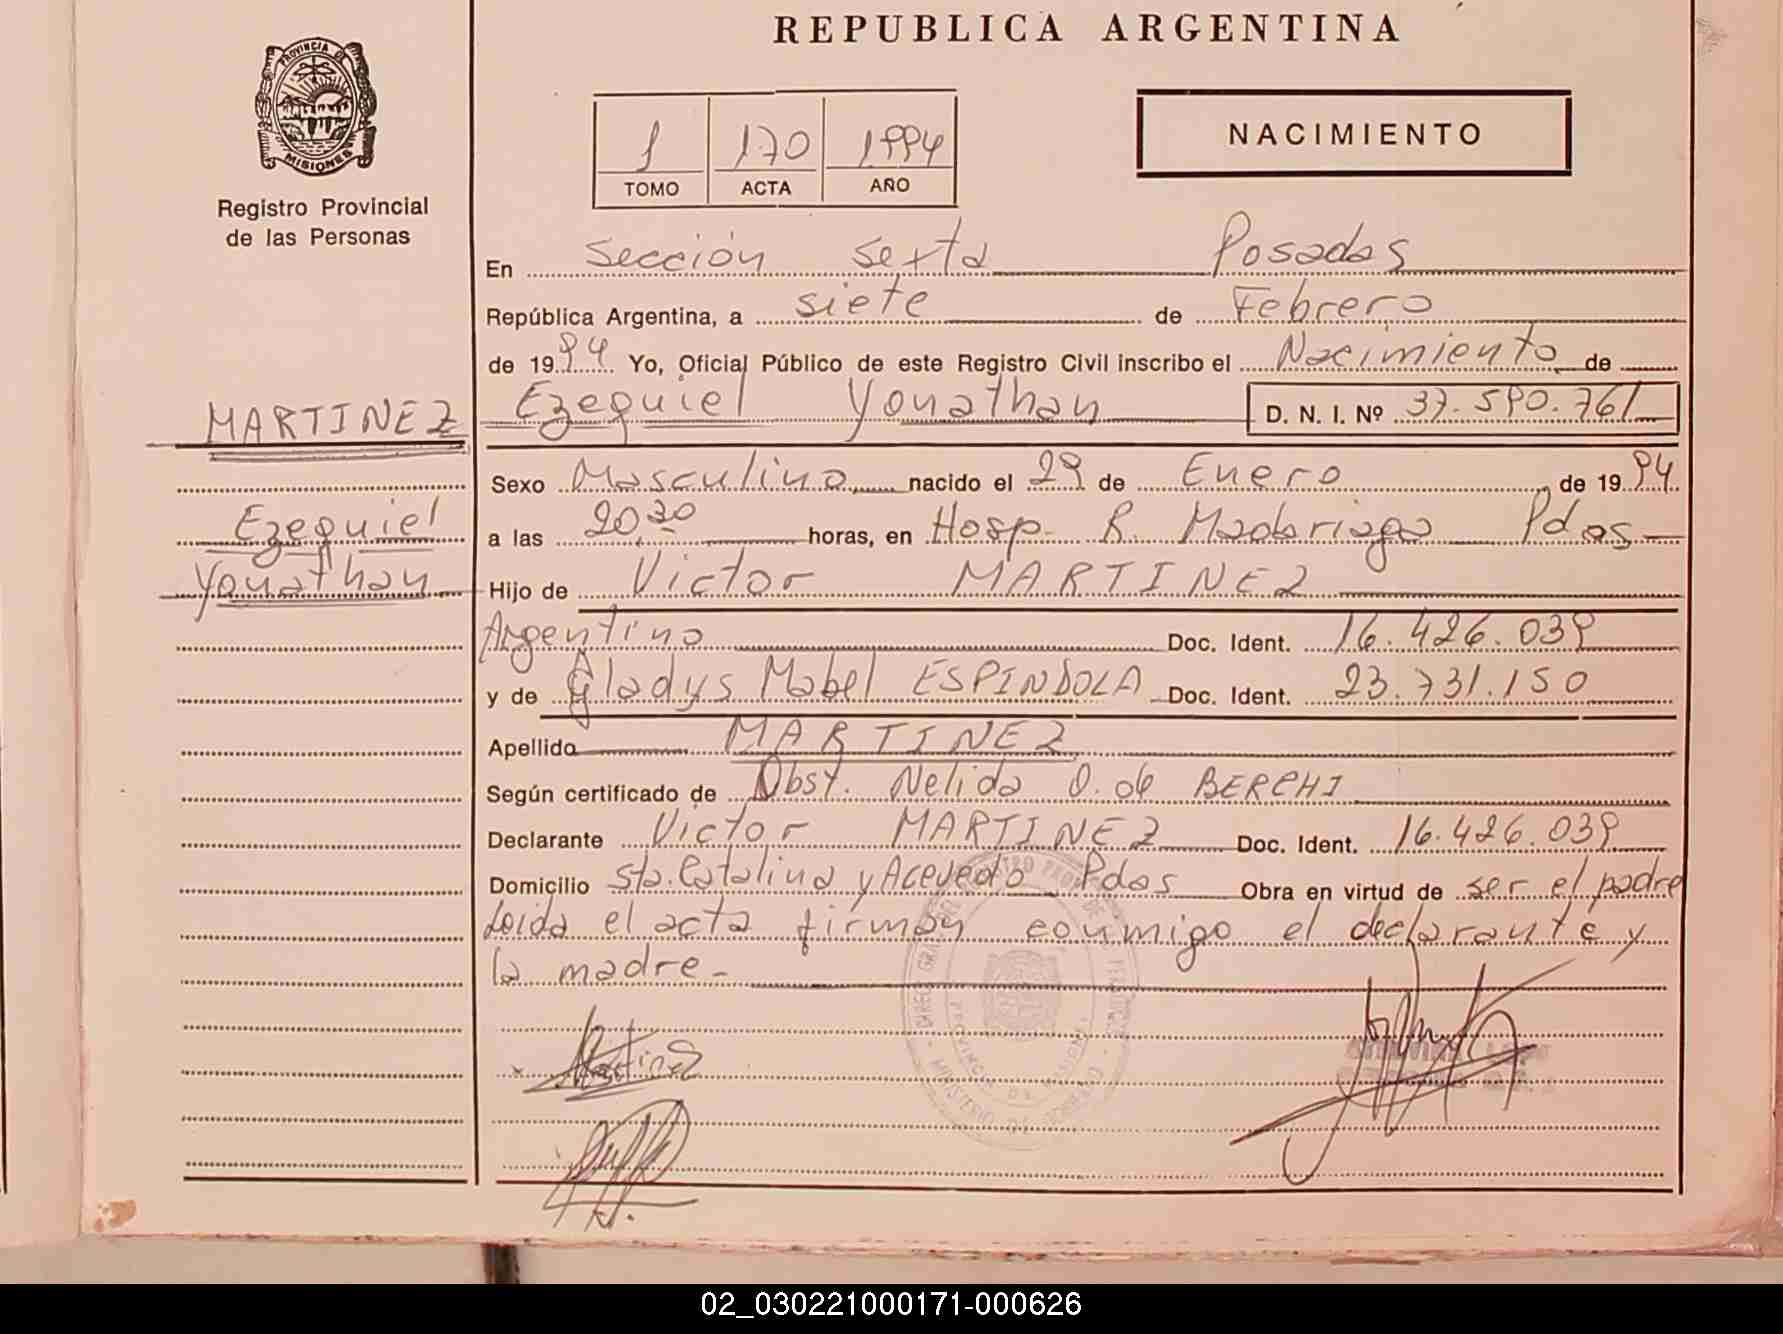 REPUBLICA ARGENTINA
PROVINCIA DE
MISIONES
Registro Provincial
de las Personas
1 170 1994
TOMO ACTA AÑO
NACIMIENTO
En Sección Sexta Posadas
República Argentina, a siete de Febrero
de 1994 Yo, Oficial Público de este Registro Civil inscribo el Nacimiento de
MARTINEZ
Ezequiel Yonathan D. N. I. Nº 37.590.761
Sexo Masculino nacido el 29 de Enero de 1994
Ezequiel
Yonathan
a las 20,30 horas, en Hosp. R. Madariaga Pdas
Hijo de Victor MARTINEZ
Argentino Doc. Ident. 16.426.039
y de Gladys Mabel ESPINDOLA Doc. Ident. 23.731.150
Apellido MARTINEZ
Según certificado de Obst. Nelida O. de BERCHI
Declarante Victor MARTINEZ Doc. Ident. 16.426.039
Domicilio Sta. Catalina y Acevedo Pdas Obra en virtud de ser el padre
Leida el acta firman conmigo el declarante y
la madre -
Martinez
02_030221000171-000626